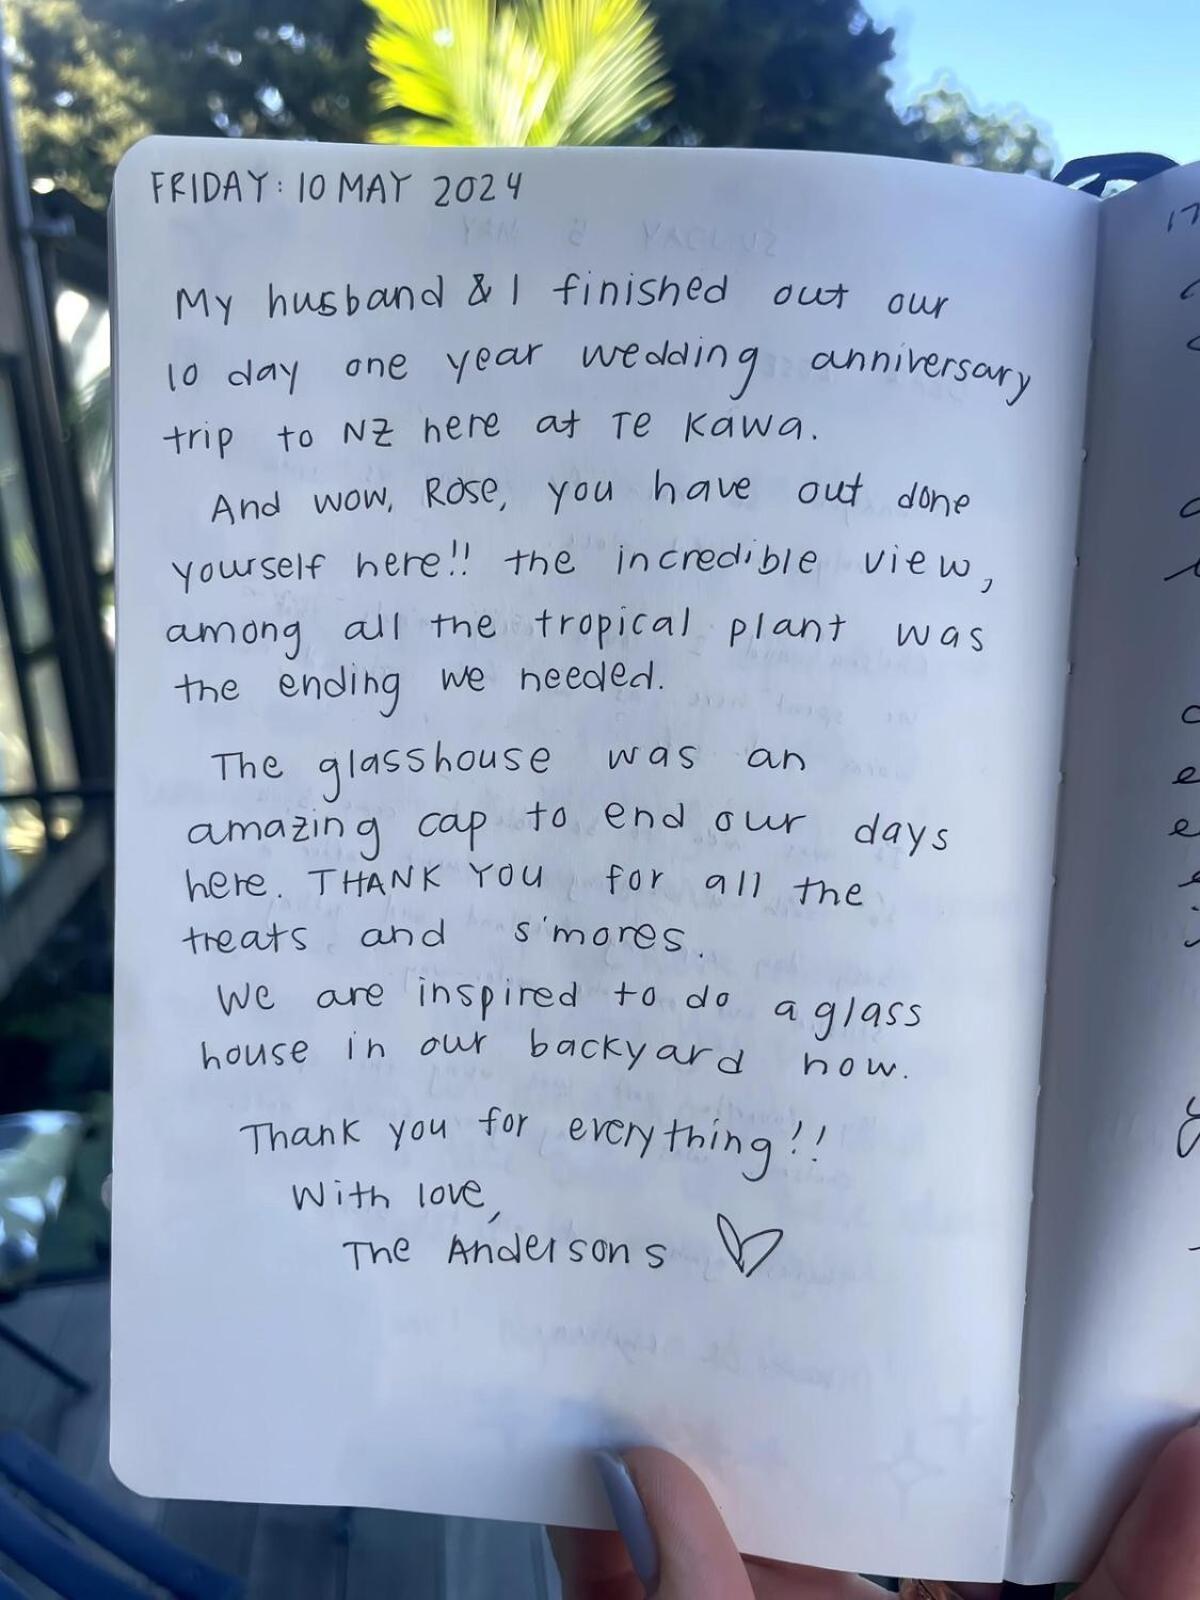 FRIDAY: 10 MAY 2024
My husband & I finished out our
10 day one year wedding anniversary
trip to NZ here at Te Kawa.
And wow, Rose, you have out done
yourself here!! the incredible view,
among all the tropical plant was
the ending we needed.
The glasshouse was an
amazing cap to end our days
here. THANK YOU for all the
treats and s'mores.
We are inspired to do a glass
house in our backyard now.
Thank you for everything!!
With love,
The Andersons